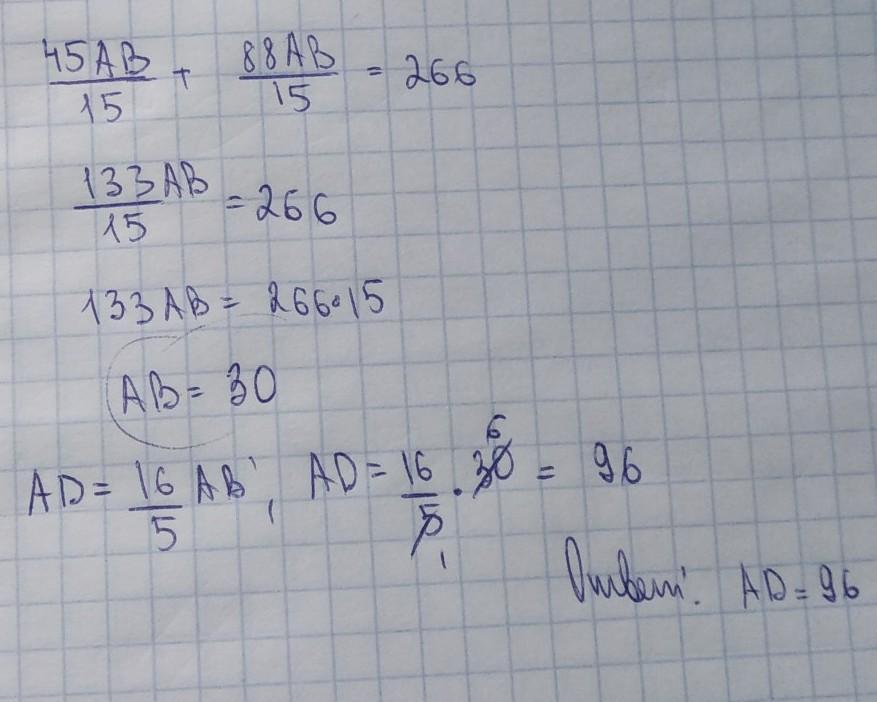 45AB/15 + 88AB/15 = 266
133AB/15 = 266
133AB = 266·15
AB = 30
AD = 16/5 AB, AD = 16/5 · 30 = 96
6
1
Ответ: AD = 96